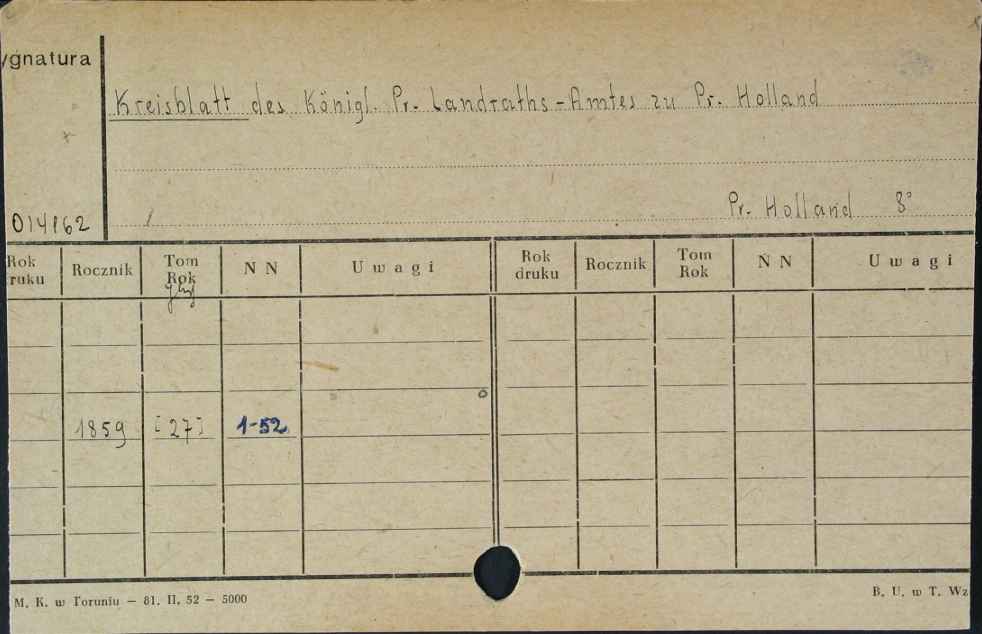 ygnatura
Kreisblatt des Königl. Pr. Landraths-Amtes zu Pr. Holland
Pr. Holland 8°
014162
Rok druku Rocznik Tom Rok N N Uwagi Rok druku Rocznik Tom Rok N N Uwagi
1859 [27] 1-52
M. K. w Toruniu — 81. II. 52 — 5000
B. U. w T. Wz